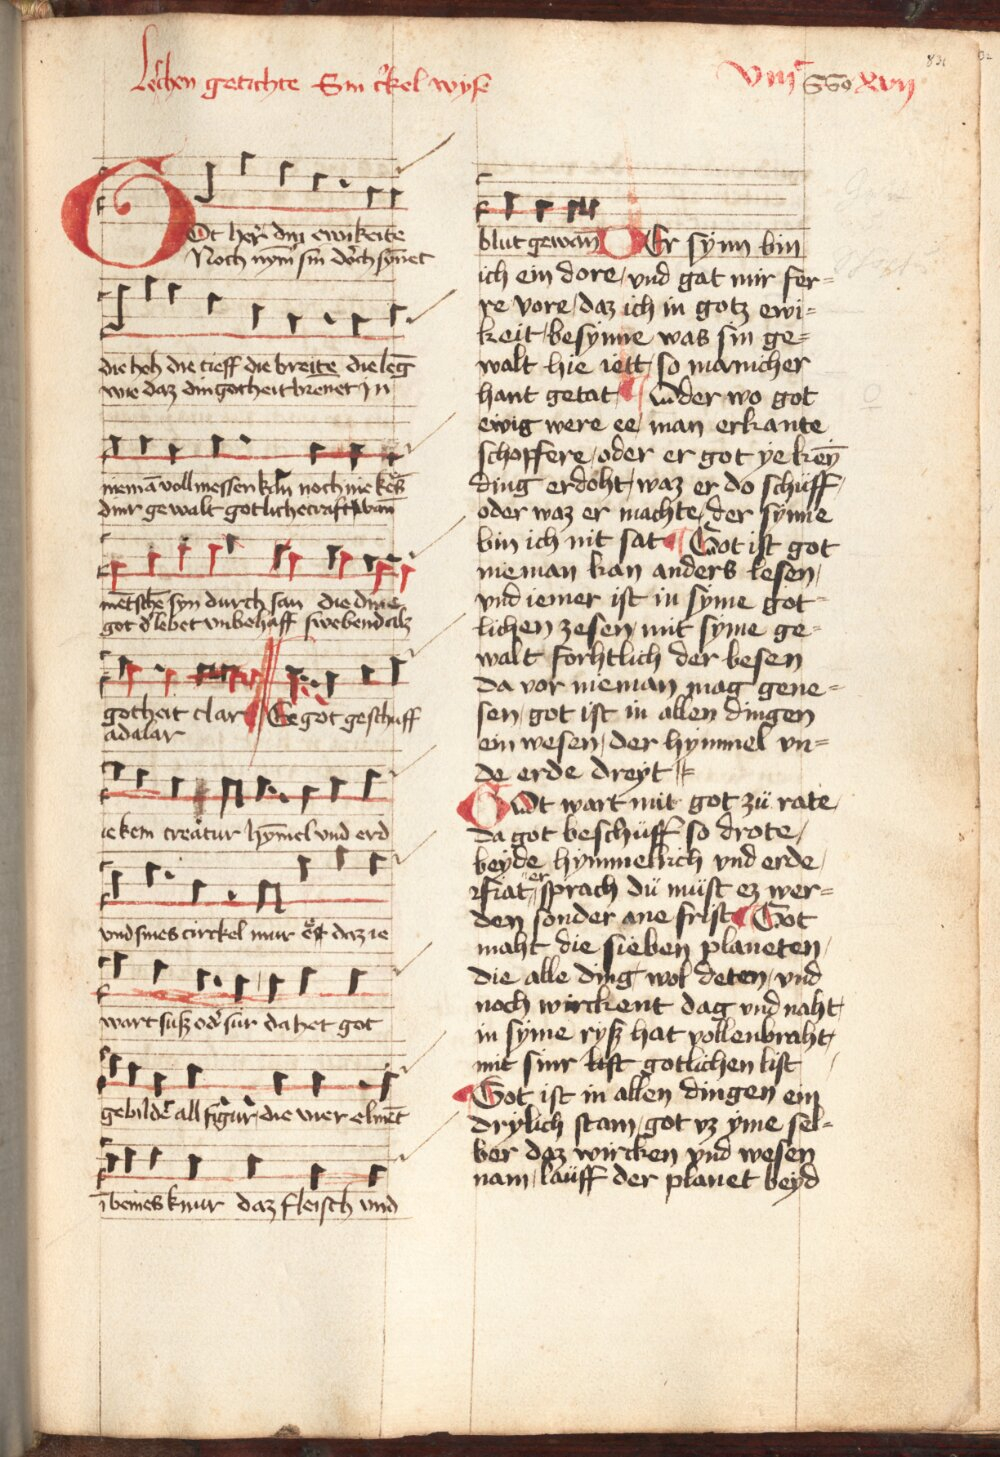 Lechen getichte Sin c̓kel wyse
viijͨ xvij
831
Got her̓ din ewikeite
Noch nym̄ sin do̓ch synnet
die hoh die tieff die breite die leng̅
wie daz din gotheit brenet Jn
niemā vollmessen kan noch nie kes̄
dinr gewalt gotliche craft wan
mētsche syn durch san die dine
got d̓ lebet vnbehafft swebend alz
gotheit clar Ee got geschuff
adalar
ie kein creatur hȳmel vnd erd
vnd sines cirrkel mur daz ie
wart susz od̓ sur da het got
gebildet all figur die vier elmēt
beines knur daz fleisch vnd
blut gewan Er synn bin
ich ein dore, vnd gat mir fer=
re vore, daz ich in gotz ewi=
keit besynne was sin ge=
walt hie iett so manicher
hant getat / oder wo got
ewig were ee man erkante
schoffere, oder er got ye keȳ
ding erdoht, waz er do schüff,
oder waz er machte, der synne
bin ich nit sat Got ist got
nieman kan anders lesen,
vnd iemer ist in syme got=
lichen zesen, mit syme ge=
walt forhtlich der besen
da vor nieman mag gene=
sen, got ist in allen dingen
ein wesen, der hymmel vn=
de erde dreyt
Got wart mit got zü rate,
da got beschüff so drote,
beyde hymmelrich vnd erde,
fiat, er sprach dü müst ez wer=
den sonder ane frist Got
maht die sieben planeten,
die alle ding wol deten, vnd
noch wirckent dag vnd naht,
in syme rysz hat vollenbraht,
mit sinr lift gotlichen list
Got ist in allen dingen ein
drylich stam, got vz yme sel=
ber daz wircken vnd wesen
nam, lauff der planet beyd